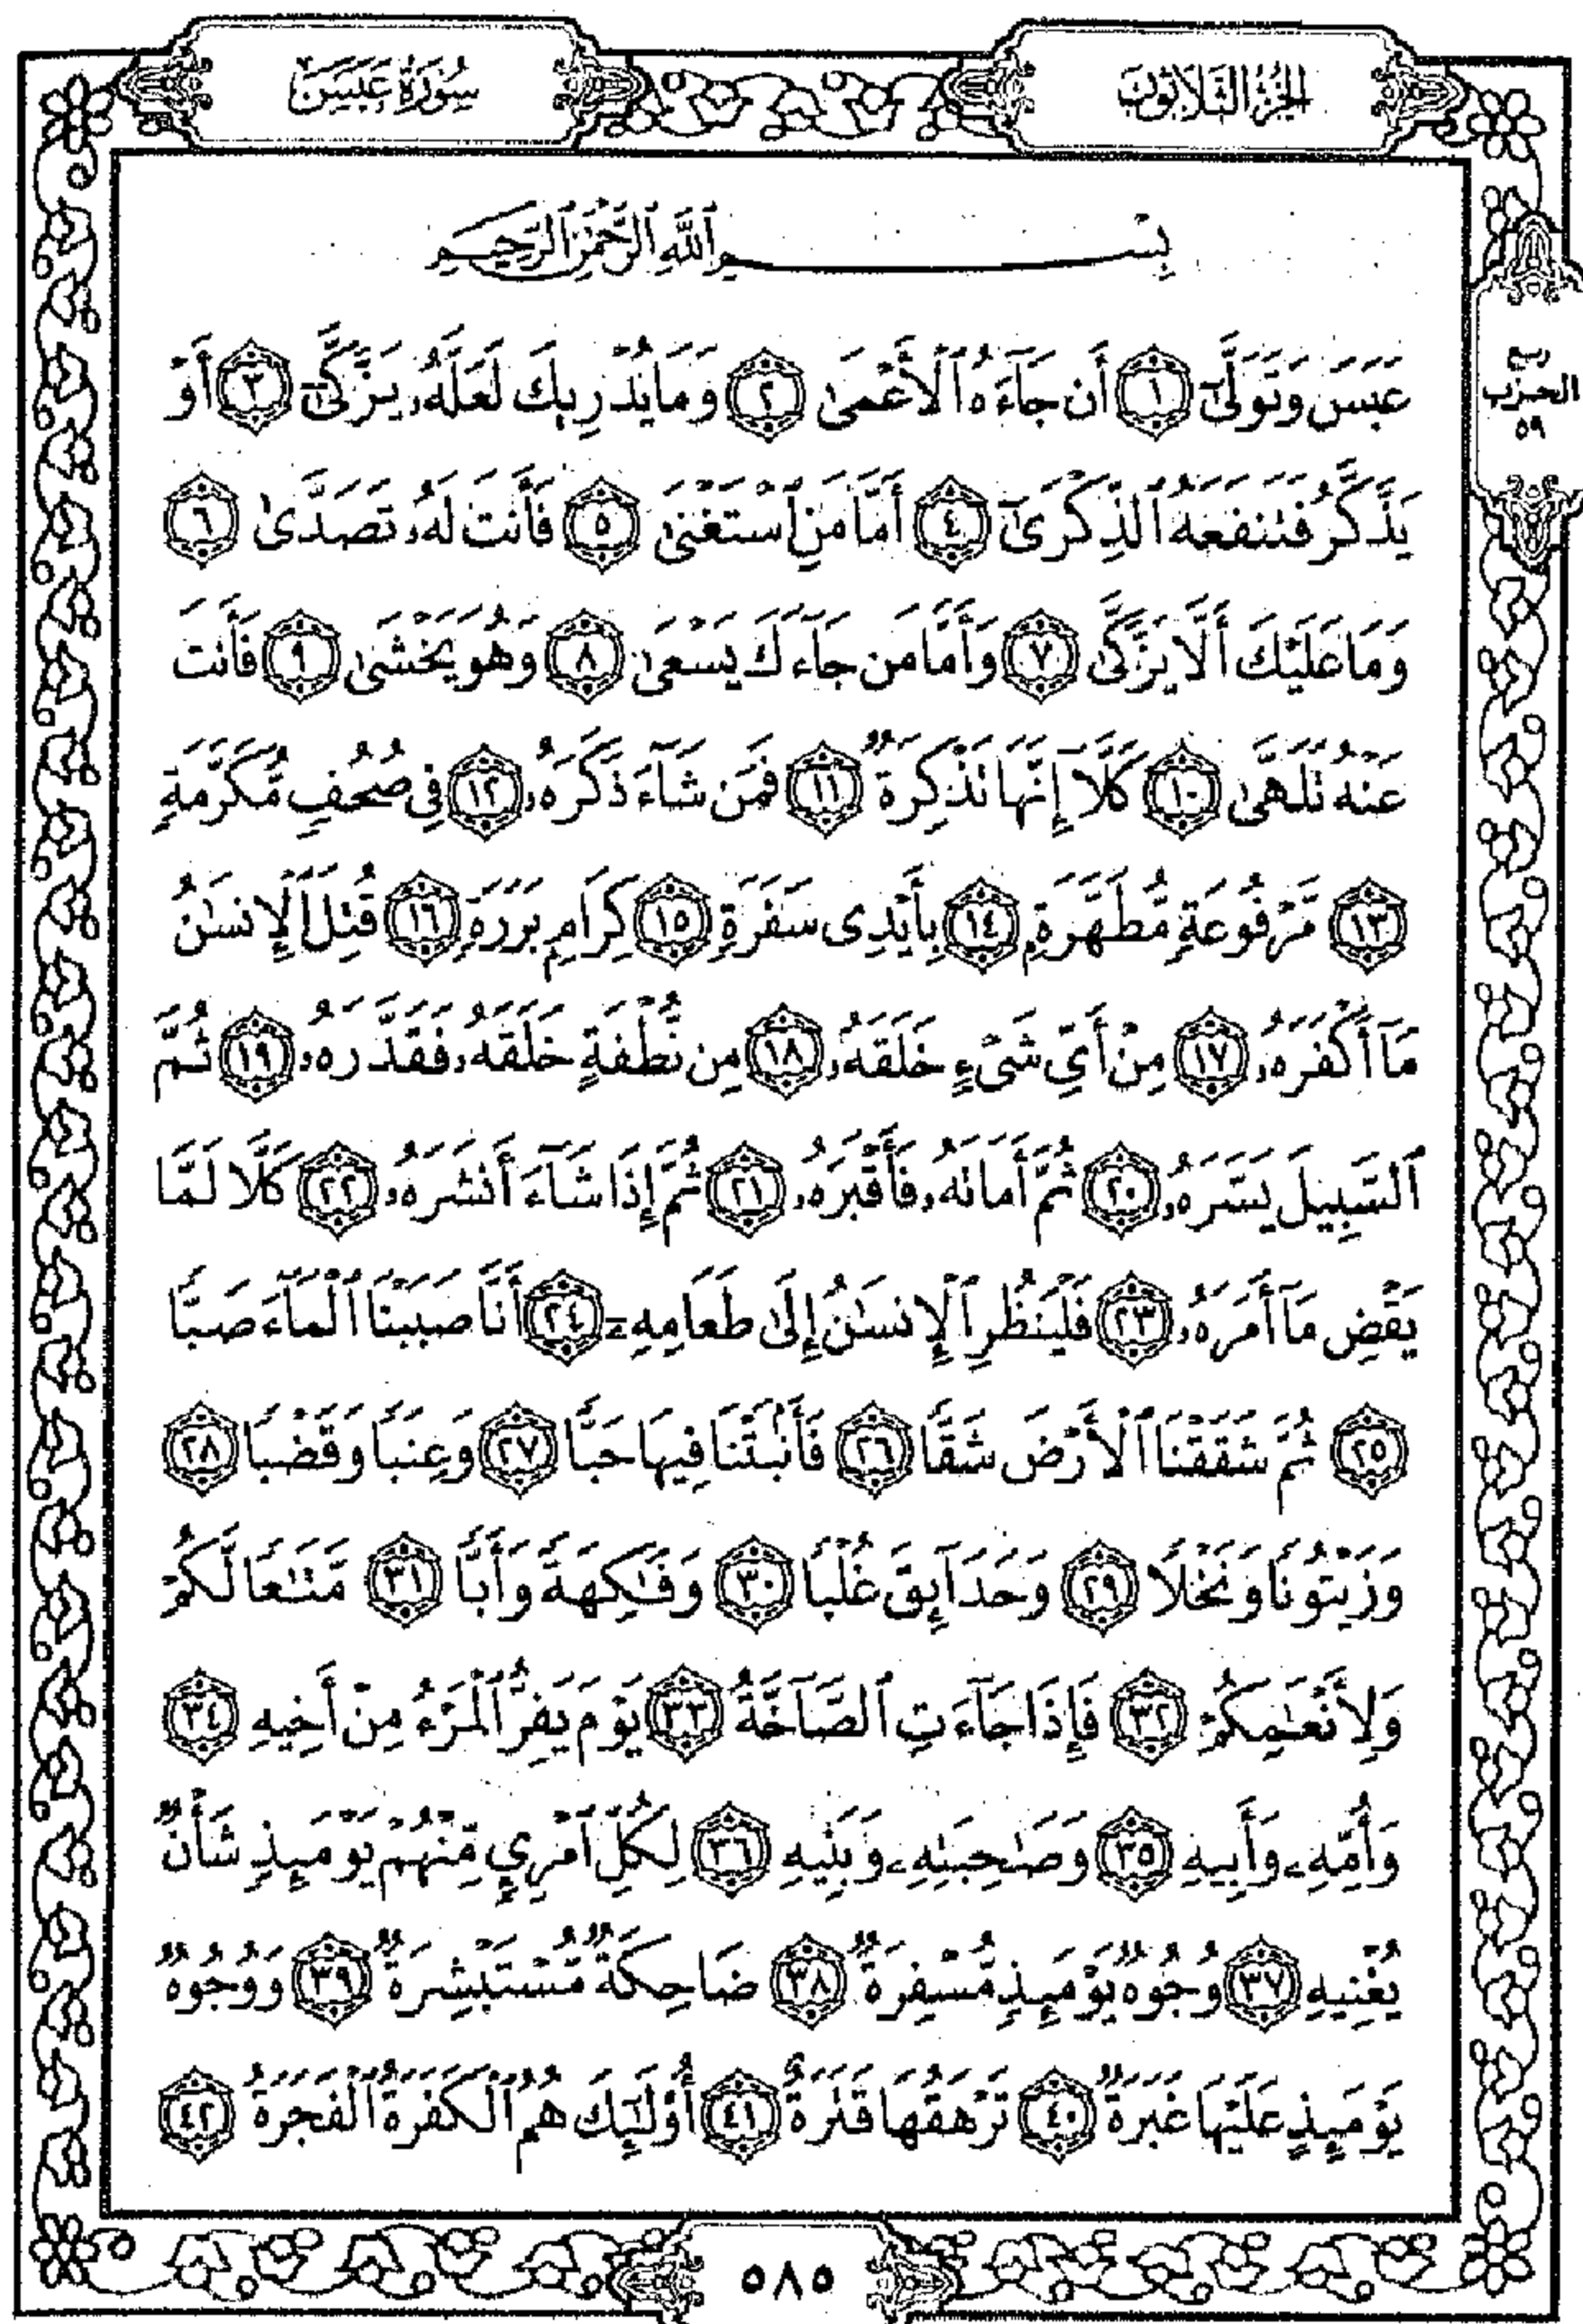 الجُزْءُ الثَّلَاثُونَ
سُورَةُ عَبَسَ
ربع
الحزب
٥٩
بِسْمِ ٱللَّهِ ٱلرَّحْمَٰنِ ٱلرَّحِيمِ
عَبَسَ وَتَوَلَّىٰٓ ١ أَن جَآءَهُ ٱلْأَعْمَىٰ ٢ وَمَا يُدْرِيكَ لَعَلَّهُۥ يَزَّكَّىٰٓ ٣ أَوْ
يَذَّكَّرُ فَتَنفَعَهُ ٱلذِّكْرَىٰٓ ٤ أَمَّا مَنِ ٱسْتَغْنَىٰ ٥ فَأَنتَ لَهُۥ تَصَدَّىٰ ٦
وَمَا عَلَيْكَ أَلَّا يَزَّكَّىٰ ٧ وَأَمَّا مَن جَآءَكَ يَسْعَىٰ ٨ وَهُوَ يَخْشَىٰ ٩ فَأَنتَ
عَنْهُ تَلَهَّىٰ ١٠ كَلَّآ إِنَّهَا تَذْكِرَةٌ ١١ فَمَن شَآءَ ذَكَرَهُۥ ١٢ فِى صُحُفٍ مُّكَرَّمَةٍ
١٣ مَّرْفُوعَةٍ مُّطَهَّرَةٍۭ ١٤ بِأَيْدِى سَفَرَةٍ ١٥ كِرَامٍۭ بَرَرَةٍ ١٦ قُتِلَ ٱلْإِنسَٰنُ
مَآ أَكْفَرَهُۥ ١٧ مِنْ أَىِّ شَىْءٍ خَلَقَهُۥ ١٨ مِن نُّطْفَةٍ خَلَقَهُۥ فَقَدَّرَهُۥ ١٩ ثُمَّ
ٱلسَّبِيلَ يَسَّرَهُۥ ٢٠ ثُمَّ أَمَاتَهُۥ فَأَقْبَرَهُۥ ٢١ ثُمَّ إِذَا شَآءَ أَنشَرَهُۥ ٢٢ كَلَّا لَمَّا
يَقْضِ مَآ أَمَرَهُۥ ٢٣ فَلْيَنظُرِ ٱلْإِنسَٰنُ إِلَىٰ طَعَامِهِۦٓ ٢٤ أَنَّا صَبَبْنَا ٱلْمَآءَ صَبًّا
٢٥ ثُمَّ شَقَقْنَا ٱلْأَرْضَ شَقًّا ٢٦ فَأَنۢبَتْنَا فِيهَا حَبًّا ٢٧ وَعِنَبًا وَقَضْبًا ٢٨
وَزَيْتُونًا وَنَخْلًا ٢٩ وَحَدَآئِقَ غُلْبًا ٣٠ وَفَٰكِهَةً وَأَبًّا ٣١ مَّتَٰعًا لَّكُمْ
وَلِأَنْعَٰمِكُمْ ٣٢ فَإِذَا جَآءَتِ ٱلصَّآخَّةُ ٣٣ يَوْمَ يَفِرُّ ٱلْمَرْءُ مِنْ أَخِيهِ ٣٤
وَأُمِّهِۦ وَأَبِيهِ ٣٥ وَصَٰحِبَتِهِۦ وَبَنِيهِ ٣٦ لِكُلِّ ٱمْرِئٍ مِّنْهُمْ يَوْمَئِذٍ شَأْنٌ
يُغْنِيهِ ٣٧ وُجُوهٌ يَوْمَئِذٍ مُّسْفِرَةٌ ٣٨ ضَاحِكَةٌ مُّسْتَبْشِرَةٌ ٣٩ وَوُجُوهٌ
يَوْمَئِذٍ عَلَيْهَا غَبَرَةٌ ٤٠ تَرْهَقُهَا قَتَرَةٌ ٤١ أُو۟لَٰٓئِكَ هُمُ ٱلْكَفَرَةُ ٱلْفَجَرَةُ ٤٢
٥٨٥